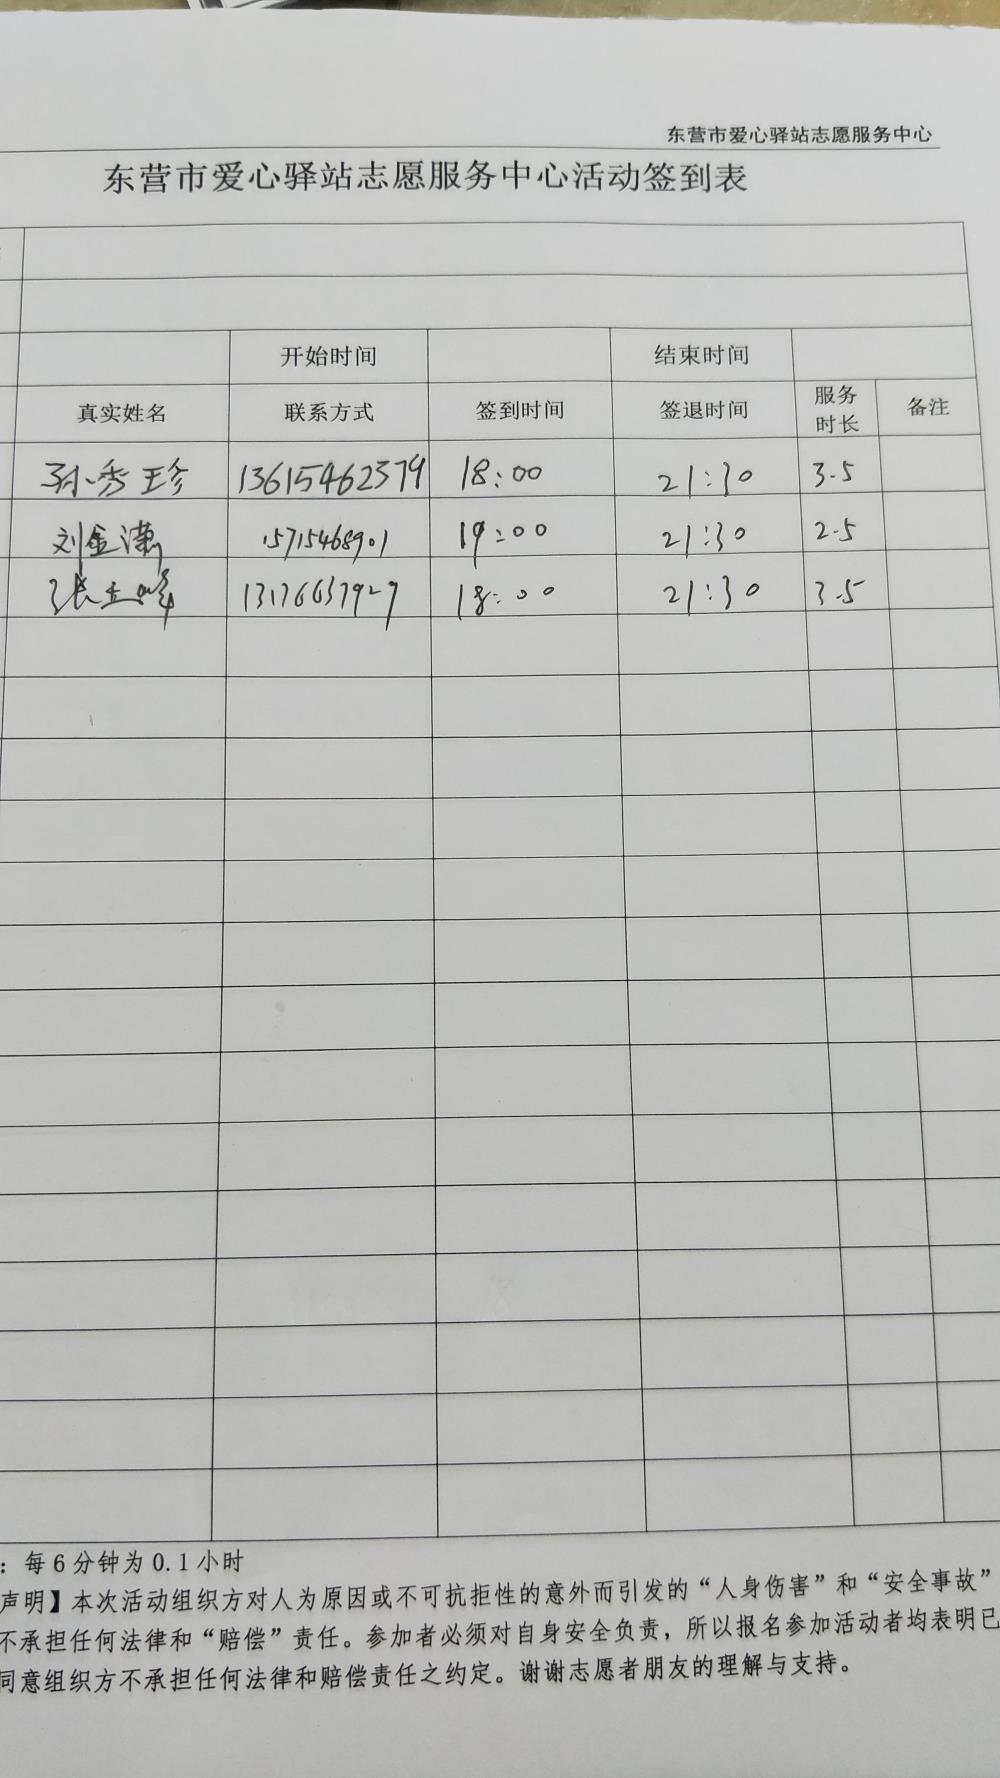 东营市爱心驿站志愿服务中心
东营市爱心驿站志愿服务中心活动签到表
开始时间 结束时间
真实姓名 联系方式 签到时间 签退时间 服务时长 备注
孙秀珍 13615462379 18:00 21:30 3.5
刘金潇 15715468901 19:00 21:30 2.5
张玉峰 13176637927 18:00 21:30 3.5
：每6分钟为0.1小时
声明】本次活动组织方对人为原因或不可抗拒性的意外而引发的“人身伤害”和“安全事故”
不承担任何法律和“赔偿”责任。参加者必须对自身安全负责，所以报名参加活动者均表明已
同意组织方不承担任何法律和赔偿责任之约定。谢谢志愿者朋友的理解与支持。